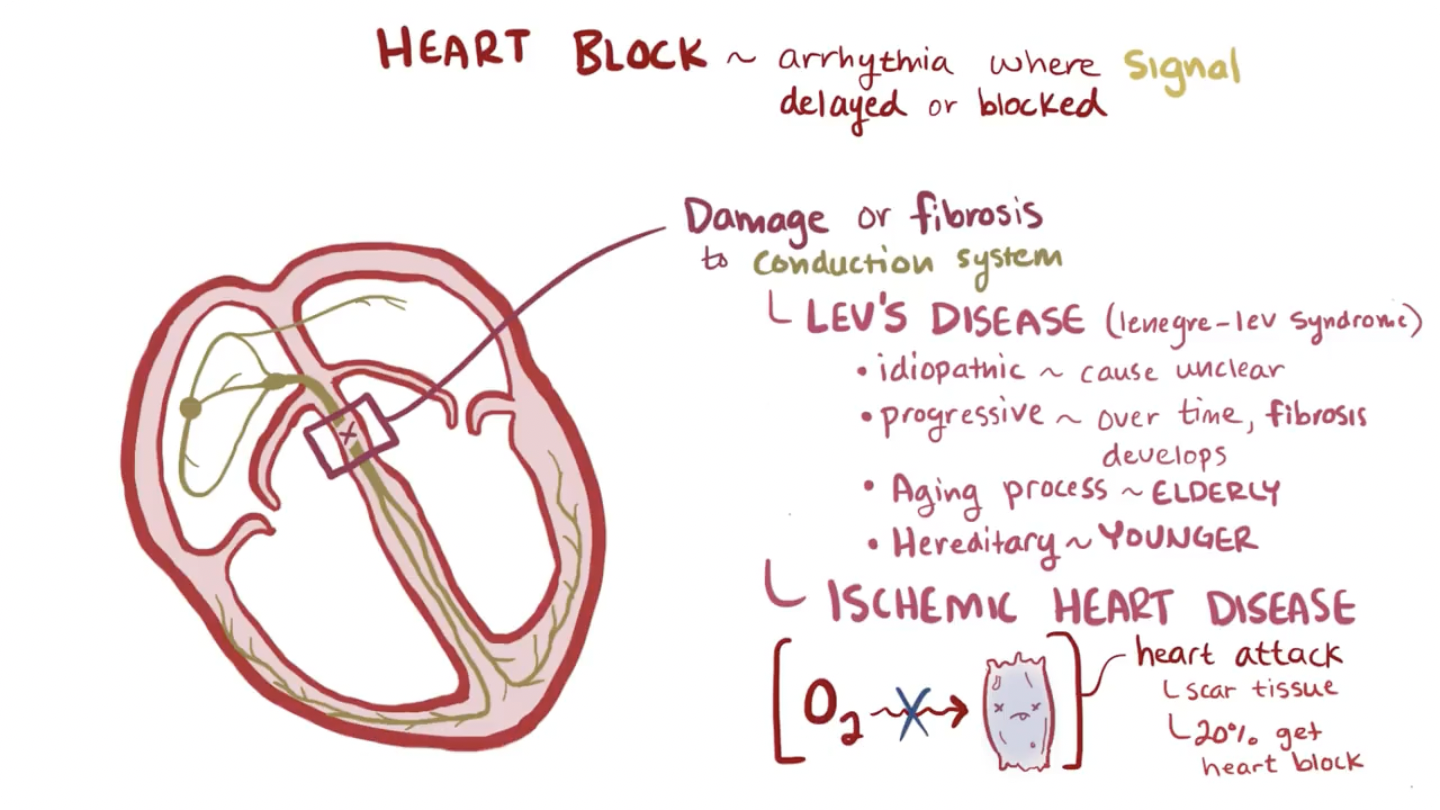 HEART BLOCK ~ arrhythmia where signal
delayed or blocked
Damage or fibrosis
to conduction system
LEV'S DISEASE (lenegre-lev syndrome)
• idiopathic ~ cause unclear
• progressive ~ over time, fibrosis
develops
• Aging process ~ ELDERLY
• Hereditary ~ YOUNGER
ISCHEMIC HEART DISEASE
O2
heart attack
scar tissue
20% get
heart block